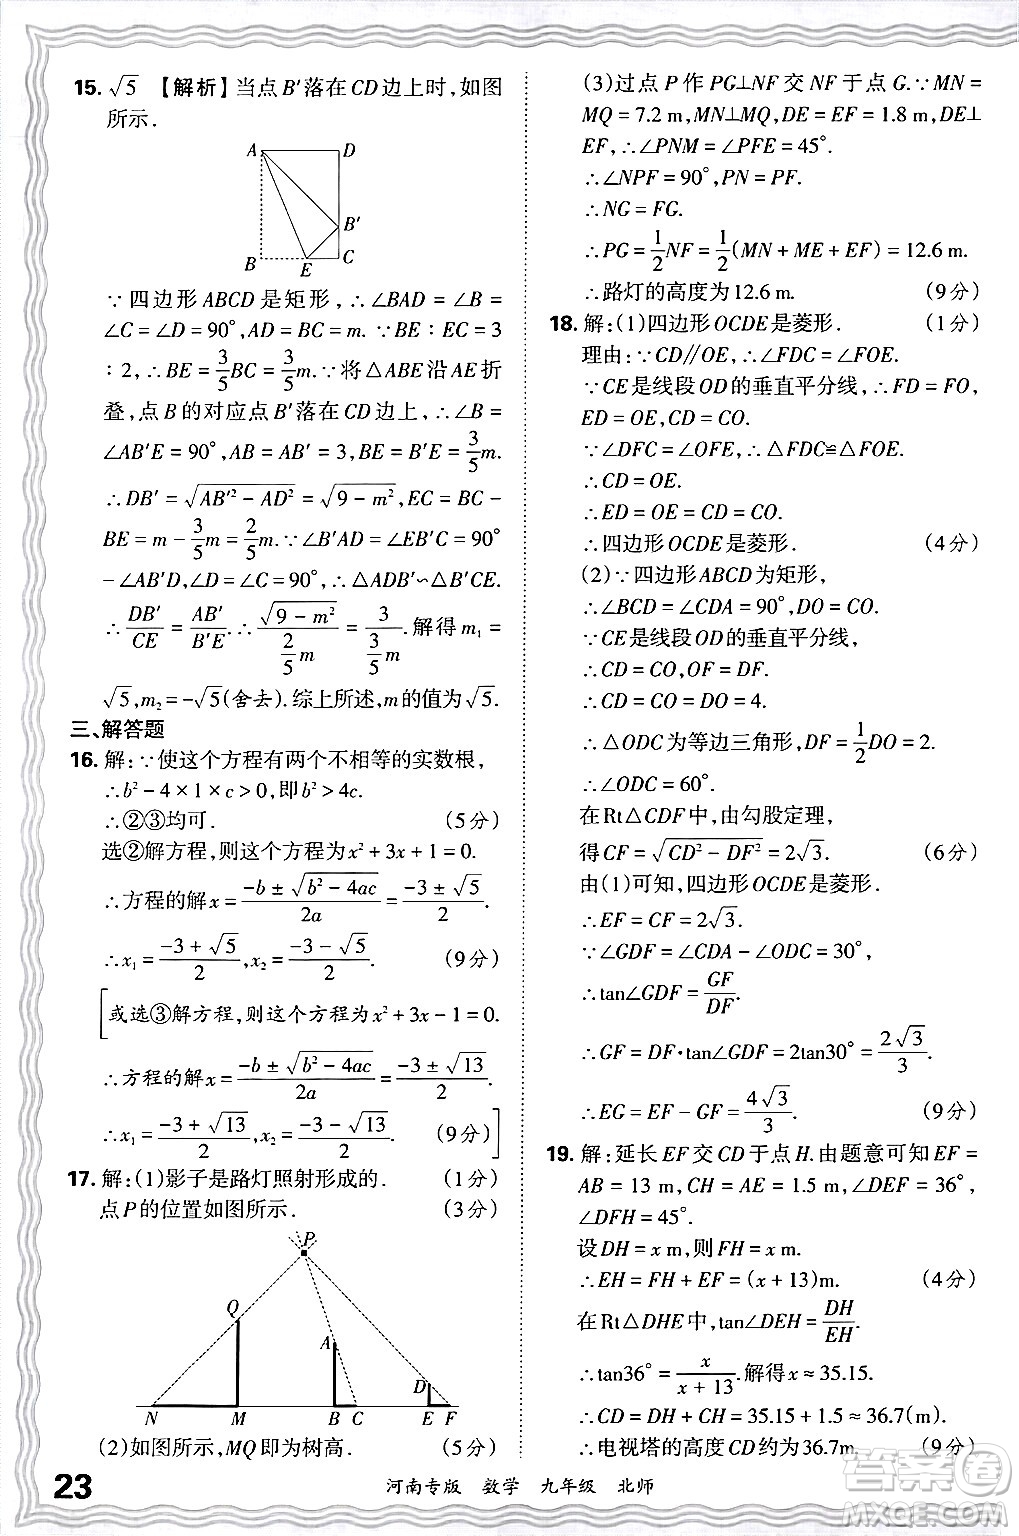 15. √5 【解析】当点B′落在CD边上时,如图
所示.
A D
B′
B E C
∵四边形ABCD是矩形,∴∠BAD=∠B=
∠C=∠D=90°,AD=BC=m.∵BE∶EC=3
∶2,∴BE=3/5BC=3/5m.∵将△ABE沿AE折
叠,点B的对应点B′落在CD边上,∴∠B=
∠AB′E=90°,AB=AB′=3,B′E=BE=3/5m.
∴DB′=√(AB′²-AD²)=√(9-m²),EC=BC-
BE=m-3/5m=2/5m.∵∠B′AD=∠EB′C=90°
-∠AB′D,∠D=∠C=90°,∴△ADB′∽△B′CE.
∴DB′/CE=AB′/B′E.∴√(9-m²)/(2/5m)=3/(3/5m).解得m₁=
√5,m₂=-√5(舍去).综上所述,m的值为√5.
三、解答题
16. 解:∵使这个方程有两个不相等的实数根,
∴b²-4×1×c>0,即b²>4c.
∴②③均可. (5分)
选②解方程,则这个方程为x²+3x+1=0.
∴方程的解x=(-b±√(b²-4ac))/2a=(-3±√5)/2.
∴x₁=(-3+√5)/2,x₂=(-3-√5)/2. (9分)
[或选③解方程,则这个方程为x²+3x-1=0.
∴方程的解x=(-b±√(b²-4ac))/2a=(-3±√13)/2.
∴x₁=(-3+√13)/2,x₂=(-3-√13)/2. (9分)]
17. 解:(1)影子是路灯照射形成的. (1分)
点P的位置如图所示. (3分)
P
Q
A
D
N M B C E F
(2)如图所示,MQ即为树高. (5分)
(3)过点P作PG⊥NF交NF于点G.∵MN=
MQ=7.2 m,MN⊥MQ,DE=EF=1.8 m,DE⊥
EF,∴∠PNM=∠PFE=45°.
∴∠NPF=90°,PN=PF.
∴NG=FG.
∴PG=1/2NF=1/2(MN+ME+EF)=12.6 m.
∴路灯的高度为12.6 m. (9分)
18. 解:(1)四边形OCDE是菱形. (1分)
理由:∵CD∥OE,∴∠FDC=∠FOE.
∵CE是线段OD的垂直平分线,∴FD=FO,
ED=OE,CD=CO.
∵∠DFC=∠OFE,∴△FDC≌△FOE.
∴CD=OE.
∴ED=OE=CD=CO.
∴四边形OCDE是菱形. (4分)
(2)∵四边形ABCD为矩形,
∴∠BCD=∠CDA=90°,DO=CO.
∵CE是线段OD的垂直平分线,
∴CD=CO,OF=DF.
∴CD=CO=DO=4.
∴△ODC为等边三角形,DF=1/2DO=2.
∴∠ODC=60°.
在Rt△CDF中,由勾股定理,
得CF=√(CD²-DF²)=2√3. (6分)
由(1)可知,四边形OCDE是菱形,
∴EF=CF=2√3.
∵∠GDF=∠CDA-∠ODC=30°,
∴tan∠GDF=GF/DF.
∴GF=DF·tan∠GDF=2tan30°=2√3/3.
∴EG=EF-GF=4√3/3. (9分)
19. 解:延长EF交CD于点H.由题意可知EF=
AB=13 m,CH=AE=1.5 m,∠DEF=36°,
∠DFH=45°.
设DH=x m,则FH=x m.
∴EH=FH+EF=(x+13)m. (4分)
在Rt△DHE中,tan∠DEH=DH/EH.
∴tan36°=x/(x+13).解得x≈35.15.
∴CD=DH+CH=35.15+1.5≈36.7(m).
∴电视塔的高度CD约为36.7m. (9分)
23 河南专版 数学 九年级 北师
答案圈